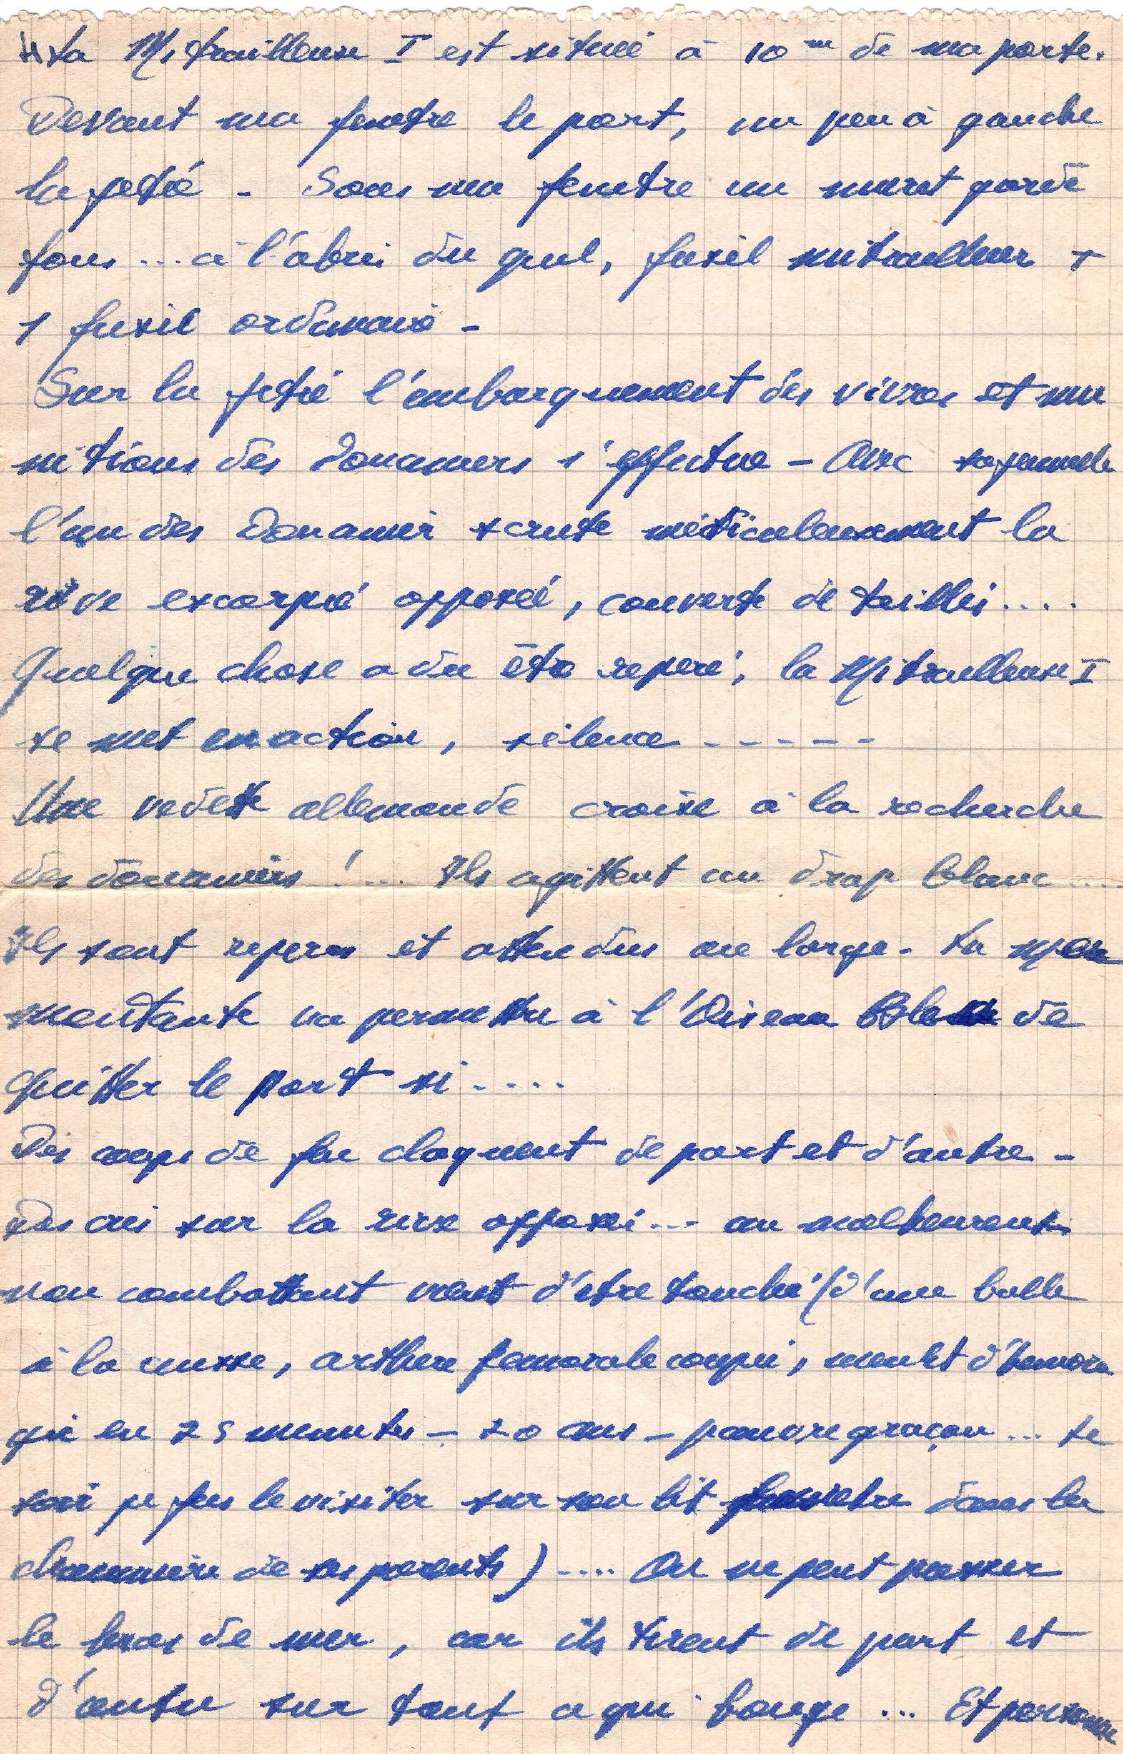 4) La Mitrailleuse I est située à 10 m de ma porte.
Devant ma fenetre le port, un peu à gauche
la jetée - Sous ma fenetre un muret garde
fous... à l'abri du quel, fusil mitrailleur +
1 fusil ordinaire -
Sur la jetée l'embarquement des vivres et mu
nitions des Douaniers s'effectue - Avec sa jumelle
l'un des Douanier scrute méticuleusement la
rive escarpée opposée, couverte de taillis....
Quelque chose a du être reperé, la Mitrailleuse I
se met en action, silence - - - - -
Une vedette allemande croise à la recherche
des douaniers !... Ils agittent un drap blanc ....
Ils sont reperes et attendus au large - La mer
montante va permettre à l'Oiseau Bleu de
quitter le port si - ....
Des coups de feu claquent de part et d'autre -
Des cris sur la rive opposée... un malheureux
non combattant vient d'etre touché (d'une balle
à la cuisse, arthere femorale coupée, meurt d'hemora
gie en 25 minutes - 20 ans - pauvre graçon... Le
soir je fus le visiter sur son lit dans la
chaumière de ses parents) .... On ne peut passer
le bras de mer, car ils tirent de part et
d'autre sur tout a qui bouge ... Et personne